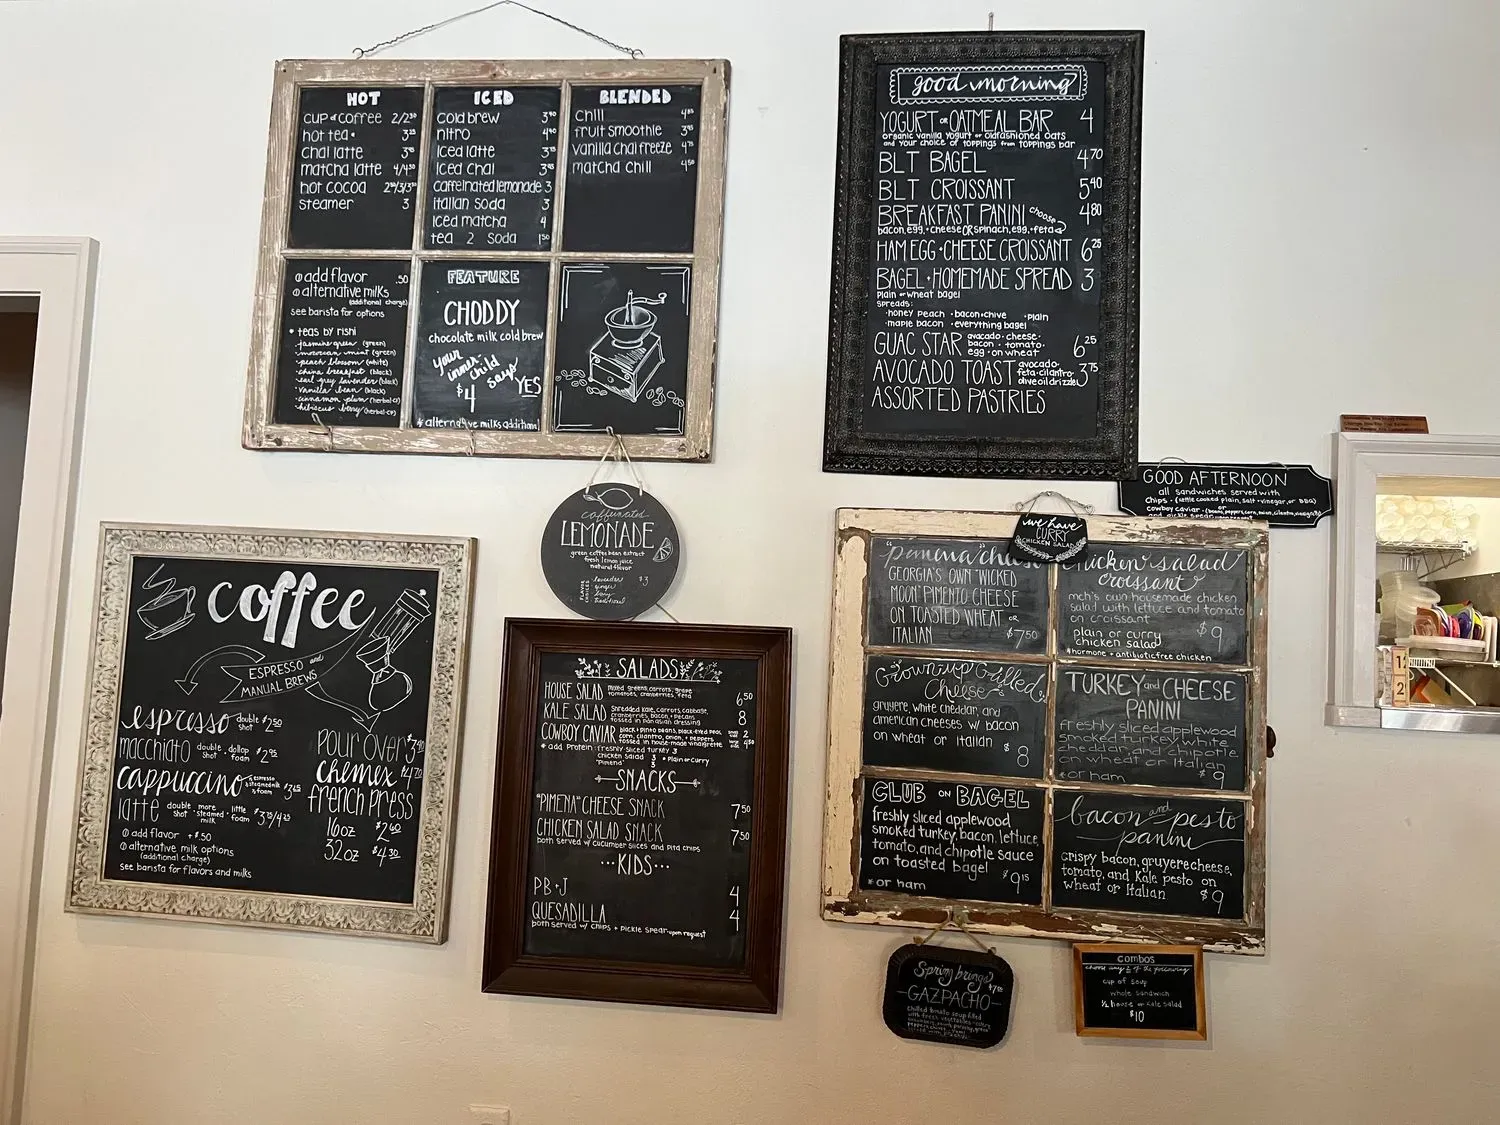 HOT
cup of coffee 2/2⁵⁰
hot tea • 3²⁵
chai latte
matcha latte
hot cocoa
steamer 3
ICED
cold brew
nitro
iced latte
iced chai
caffeinated lemonade 3
italian soda 3
iced matcha 4
tea 2 soda 1⁵⁰
BLENDED
chill
fruit smoothie
vanilla chai freeze
matcha chill
add flavor .50
alternative milks
(additional charge)
see barista for options
* teas by rishi
jasmine green (green)
moroccan mint (green)
peach blossom (white)
china breakfast (black)
earl grey lavender (black)
vanilla bean (black)
cinnamon plum (herbal-cf)
hibiscus berry (herbal-cf)
FEATURE
CHODDY
chocolate milk cold brew
your
inner-
child
says
YES
$4
* alternative milks additional
good morning
YOGURT or OATMEAL BAR 4
organic vanilla yogurt or oldfashioned oats
and your choice of toppings from toppings bar
BLT BAGEL 4⁷⁰
BLT CROISSANT 5⁴⁰
BREAKFAST PANINI choose 4⁸⁰
bacon, egg, + cheese OR spinach, egg, + feta
HAM EGG + CHEESE CROISSANT 6²⁵
BAGEL + HOMEMADE SPREAD 3
plain or wheat bagel
spreads:
• honey peach • bacon + chive • plain
• maple bacon • everything bagel
GUAC STAR avocado • cheese • bacon • tomato • egg • on wheat 6²⁵
AVOCADO TOAST avocado • feta • cilantro • olive oil drizzle 3⁷⁵
ASSORTED PASTRIES
GOOD AFTERNOON
all sandwiches served with
chips • (kettle cooked plain, salt + vinegar, or BBQ)
or
cowboy caviar •
and pickle spear
caffeinated
LEMONADE
green coffee bean extract
fresh lemon juice
natural flavor
lavender
ginger
traditional
$3
coffee
ESPRESSO and
MANUAL BREWS
espresso double shot $2⁵⁰
macchiato double shot • dollop foam
cappuccino
latte double shot • more steamed milk • little foam
add flavor + $.50
alternative milk options
(additional charge)
see barista for flavors and milks
pour over
chemex
french press
16oz $2⁶⁰
32oz $4³⁰
SALADS
HOUSE SALAD mixed greens, carrots, grape tomatoes, cranberries, feta 6⁵⁰
KALE SALAD shredded kale, carrots, cabbage, cranberries, bacon, + pecans tossed in an asian dressing 8
COWBOY CAVIAR black + pinto beans, black-eyed peas, corn, cilantro, onion, + peppers tossed in house-made vinaigrette
* add Protein: freshly sliced turkey 3
chicken salad 3 * plain or curry
"Pimena" 3
SNACKS
"PIMENA" CHEESE SNACK 7⁵⁰
CHICKEN SALAD SNACK 7⁵⁰
both served w/ cucumber slices and pita chips
•••KIDS•••
PB + J 4
QUESADILLA 4
both served w/ chips + pickle spear upon request
we have
CURRY
CHICKEN SALAD
"pimena" cheese
GEORGIA'S OWN "WICKED
MOON" PIMENTO CHEESE
ON TOASTED WHEAT OR
ITALIAN $7⁵⁰
chicken salad
croissant
mch's own housemade chicken
salad with lettuce and tomato
on croissant
plain or curry
chicken salad $9
* hormone + antibiotic free chicken
Grown-up Grilled
Cheese
gruyere, white cheddar, and
american cheeses w/ bacon
on wheat or Italian $8
TURKEY and CHEESE
PANINI
freshly sliced applewood
smoked turkey, white
cheddar, and chipotle
on wheat or Italian
* or ham $9
CLUB ON BAGEL
freshly sliced applewood
smoked turkey, bacon, lettuce,
tomato, and chipotle sauce
on toasted bagel
* or ham $9¹⁵
bacon and pesto
panini
crispy bacon, gruyere cheese,
tomato, and kale pesto on
wheat or Italian $9
Spring brings
GAZPACHO
chilled tomato soup filled
combos
choose any 2 of the following
cup of soup
whole sandwich
½ house or kale salad
$10